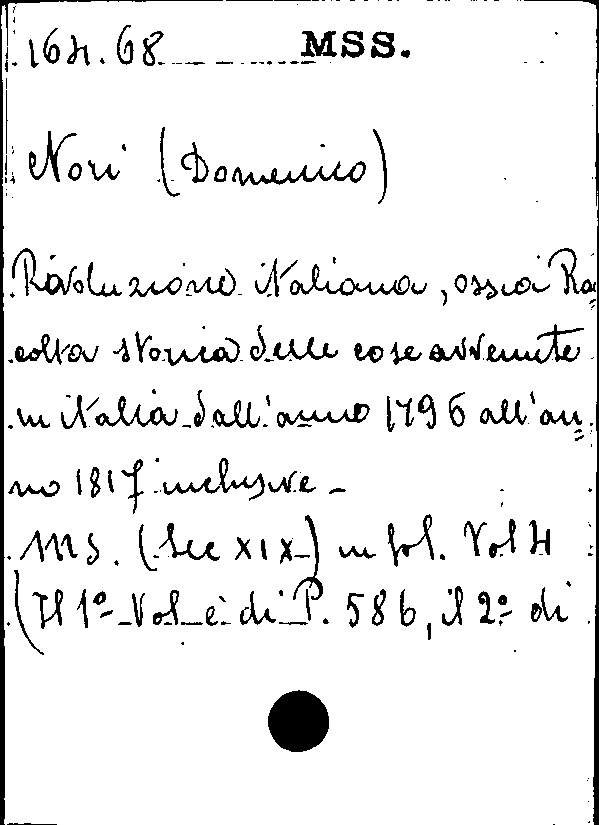 164.68 MSS.
Nori (Domenico)
Rivoluzione italiana, ossia Ra=
colta storica delle cose avvenute
in italia dall'anno 1796 all'an=
no 1817 inclusive -
MS. (Sec XIX) in fol. Vol 4
(Il 1º Vol è di P. 586, il 2º di